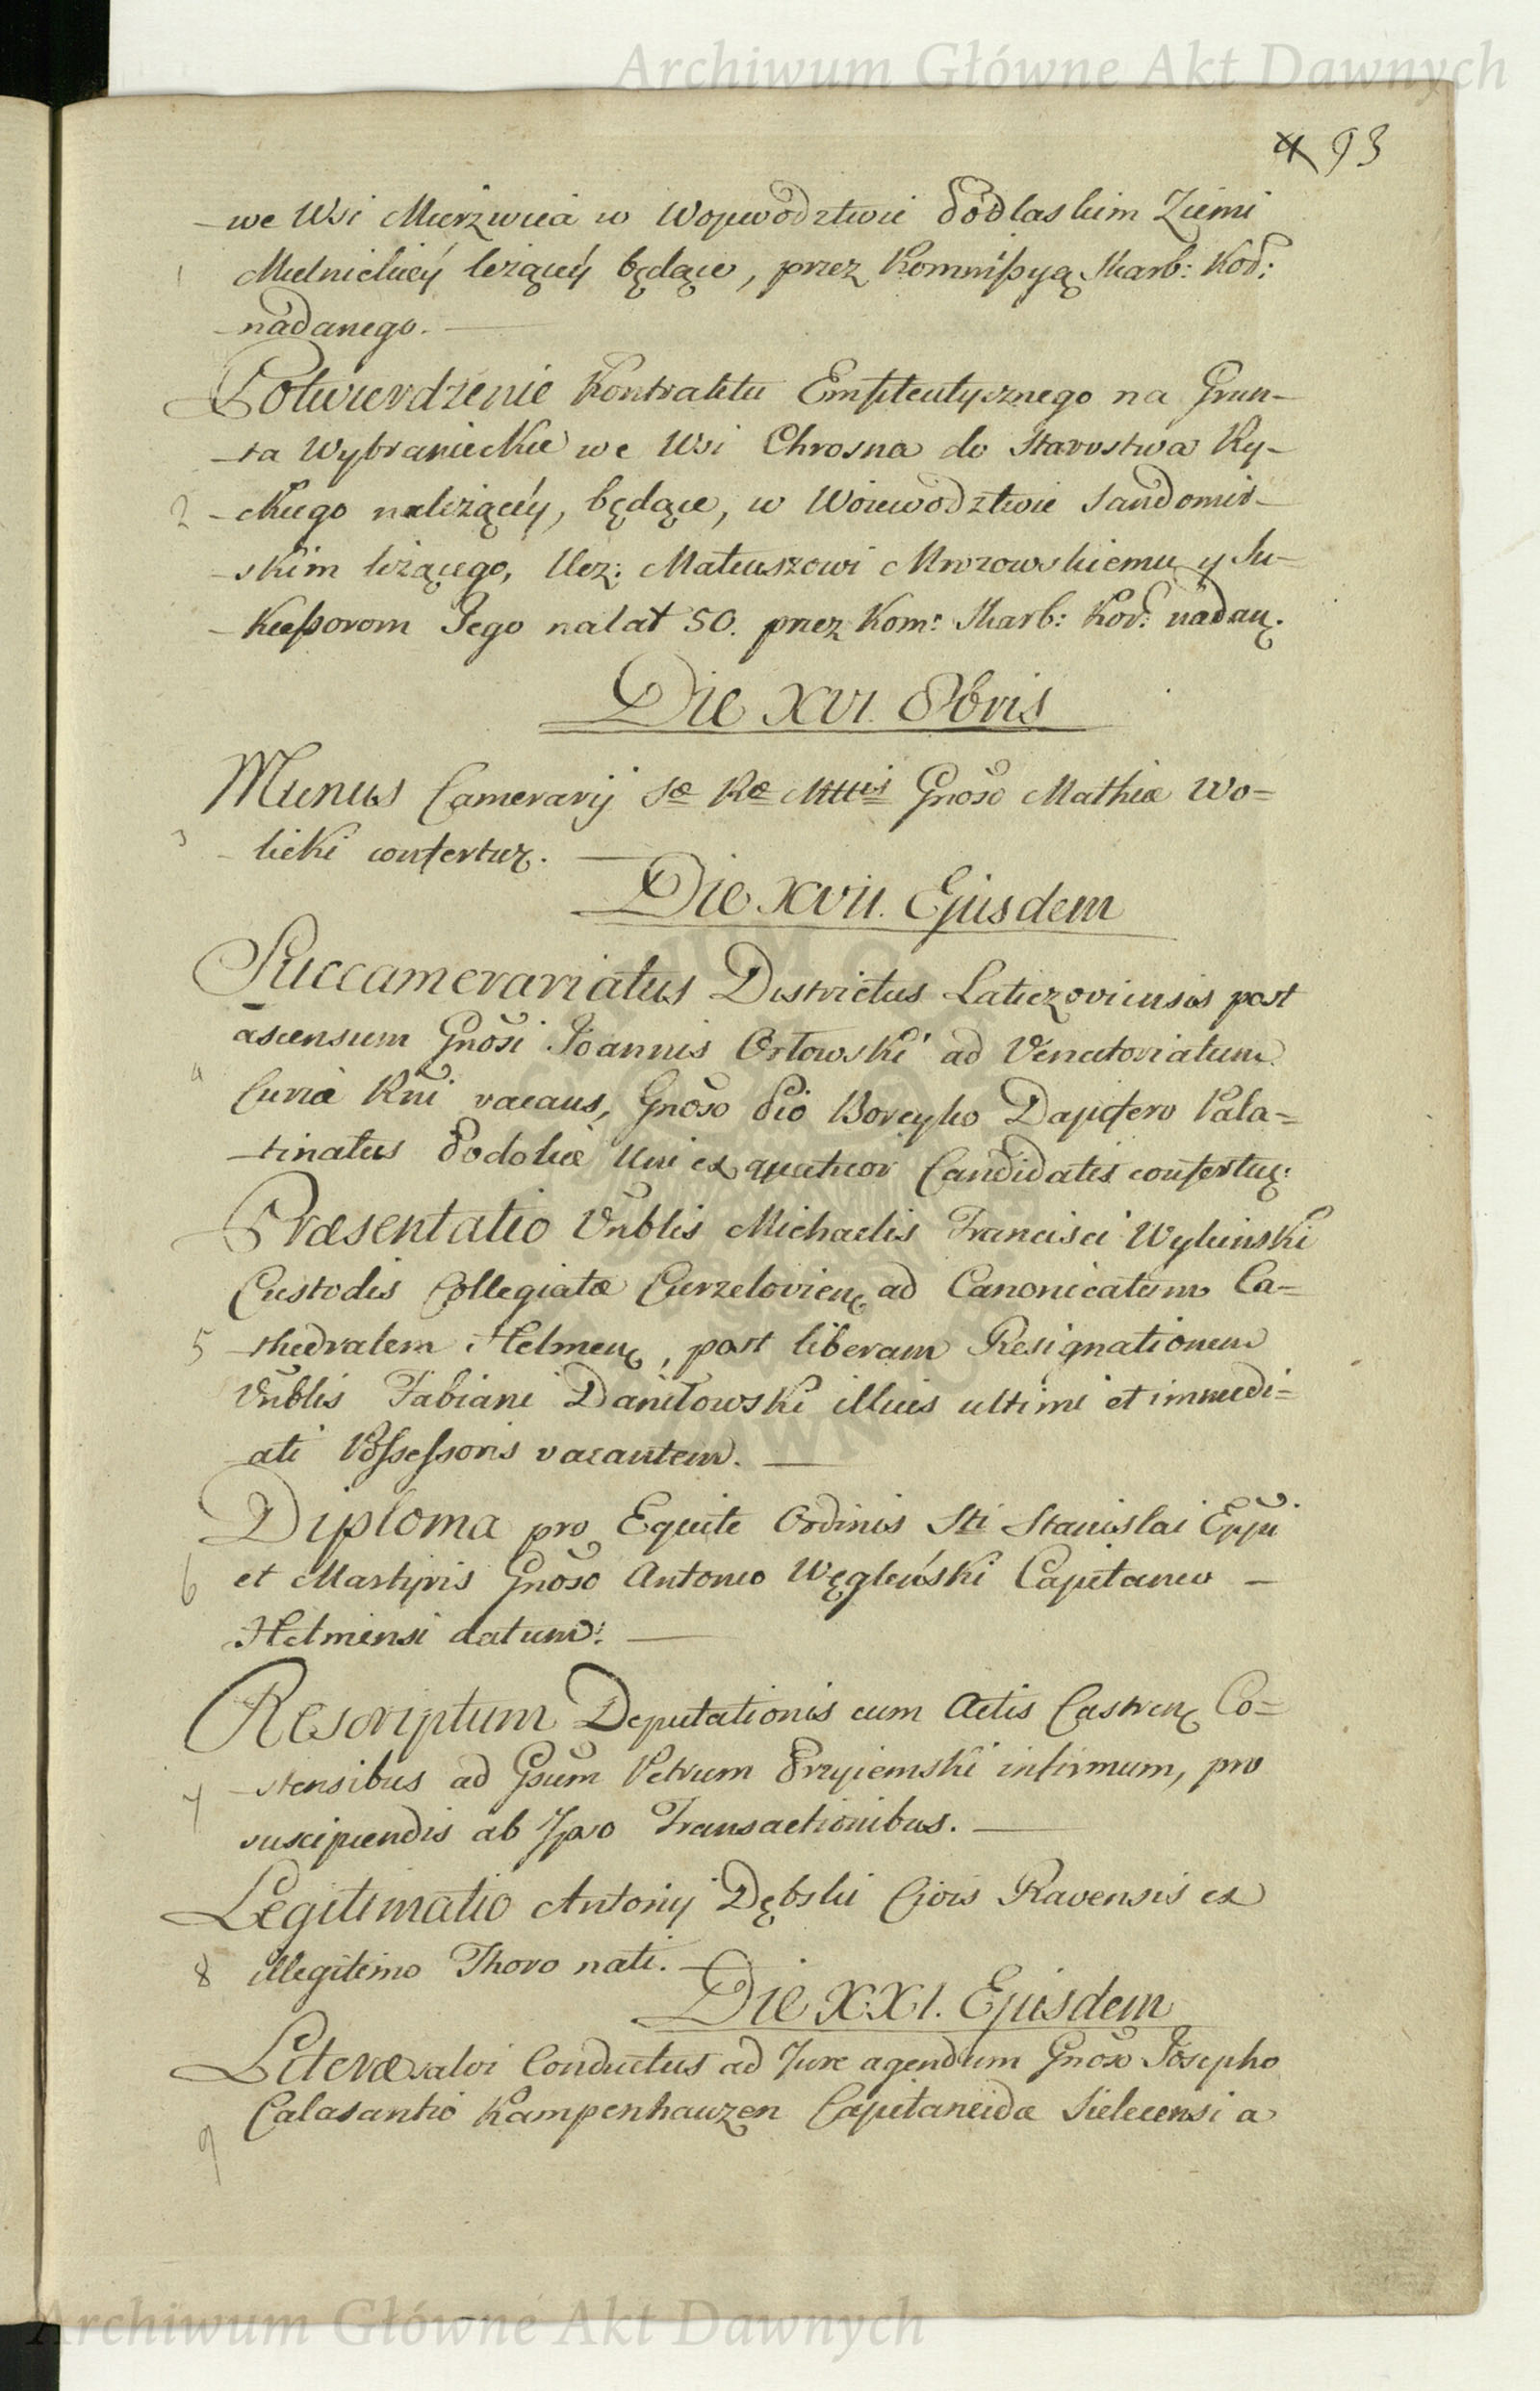 Archiwum Główne Akt Dawnych
4 93
we Wsi Mierzwica w Wojewodztwie Podlaskim Ziemi
1 Mielnickiey leżącey będące, przez Kommissyą Skarb: Kor:
nadanego.
Potwierdzenie Kontraktu Emfiteutycznego na Grun-
ta Wybranieckie we Wsi Chrosna do Starostwa Ry-
2 ckiego należącey, będące, w Woiewodztwie Sandomir-
skim leżącego, Urz: Mateuszowi Mrozowskiemu y Su-
kcessorom Jego na lat 50. przez Kom: Skarb: Kor: nadan.
Die XVI. 8bris
Munus Camerarij Sæ Ræ Mttis Gnoso Mathiæ Wo=
3 licki confertur.
Die XVII. Ejusdem
Succamerariatus Districtus Laticzoviensis post
ascensum Gnosi Joannis Orłowski ad Venatoriatum
4 Curiæ Rni vacans, Gnoso Pio Boreyko Dapifero Pala=
tinatus Podoliæ Uni ex quatuor Candidatis confertur.
Præsentatio Vnblis Michaelis Francisci Wyleinski
Custodis Collegiatæ Curzelovien, ad Canonicatum Ca=
5 thedralem Helmen, post liberam Resignationem
Vnblis Fabiani Daniłowski illius ultimi et immedi=
ati Possessoris vacantem.
Diploma pro Equite Ordinis Sti Stanislai Eppi
6 et Martyris Gnoso Antonio Węgleński Capitaneo
Helmensi datum.
Rescriptum Deputationis cum Actis Castren Co=
7 stensibus ad Gsum Petrum Przyiemski infirmum, pro
suscipiendis ab Ipso Transactionibus.
Legitimatio Antonij Dębski Civis Ravensis ex
8 illegitimo Thoro nati.
Die XXI. Ejusdem
Literæ salvi Conductus ad Jure agendum Gnoso Josepho
Calasantio Kampenhauzen Capitaneidæ Sielecensi a
9
Archiwum Główne Akt Dawnych